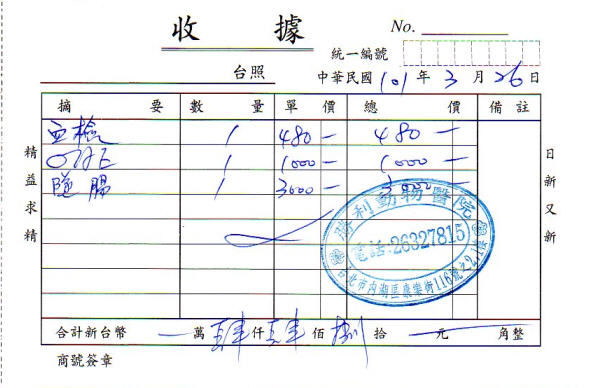 收據 No.
統一編號
台照 中華民國 101 年 3 月 26 日
摘要 數量 單價 總價 備註
血檢 1 480— 480—
1 1000— 1000—
1 3000— 3000
精益求精
日新又新
勝利動物醫院
電話:26327815
台北市內湖區康樂街116號之2,1樓
合計新台幣 — 萬 肆 仟 肆 佰 捌 拾 元 角整
商號簽章